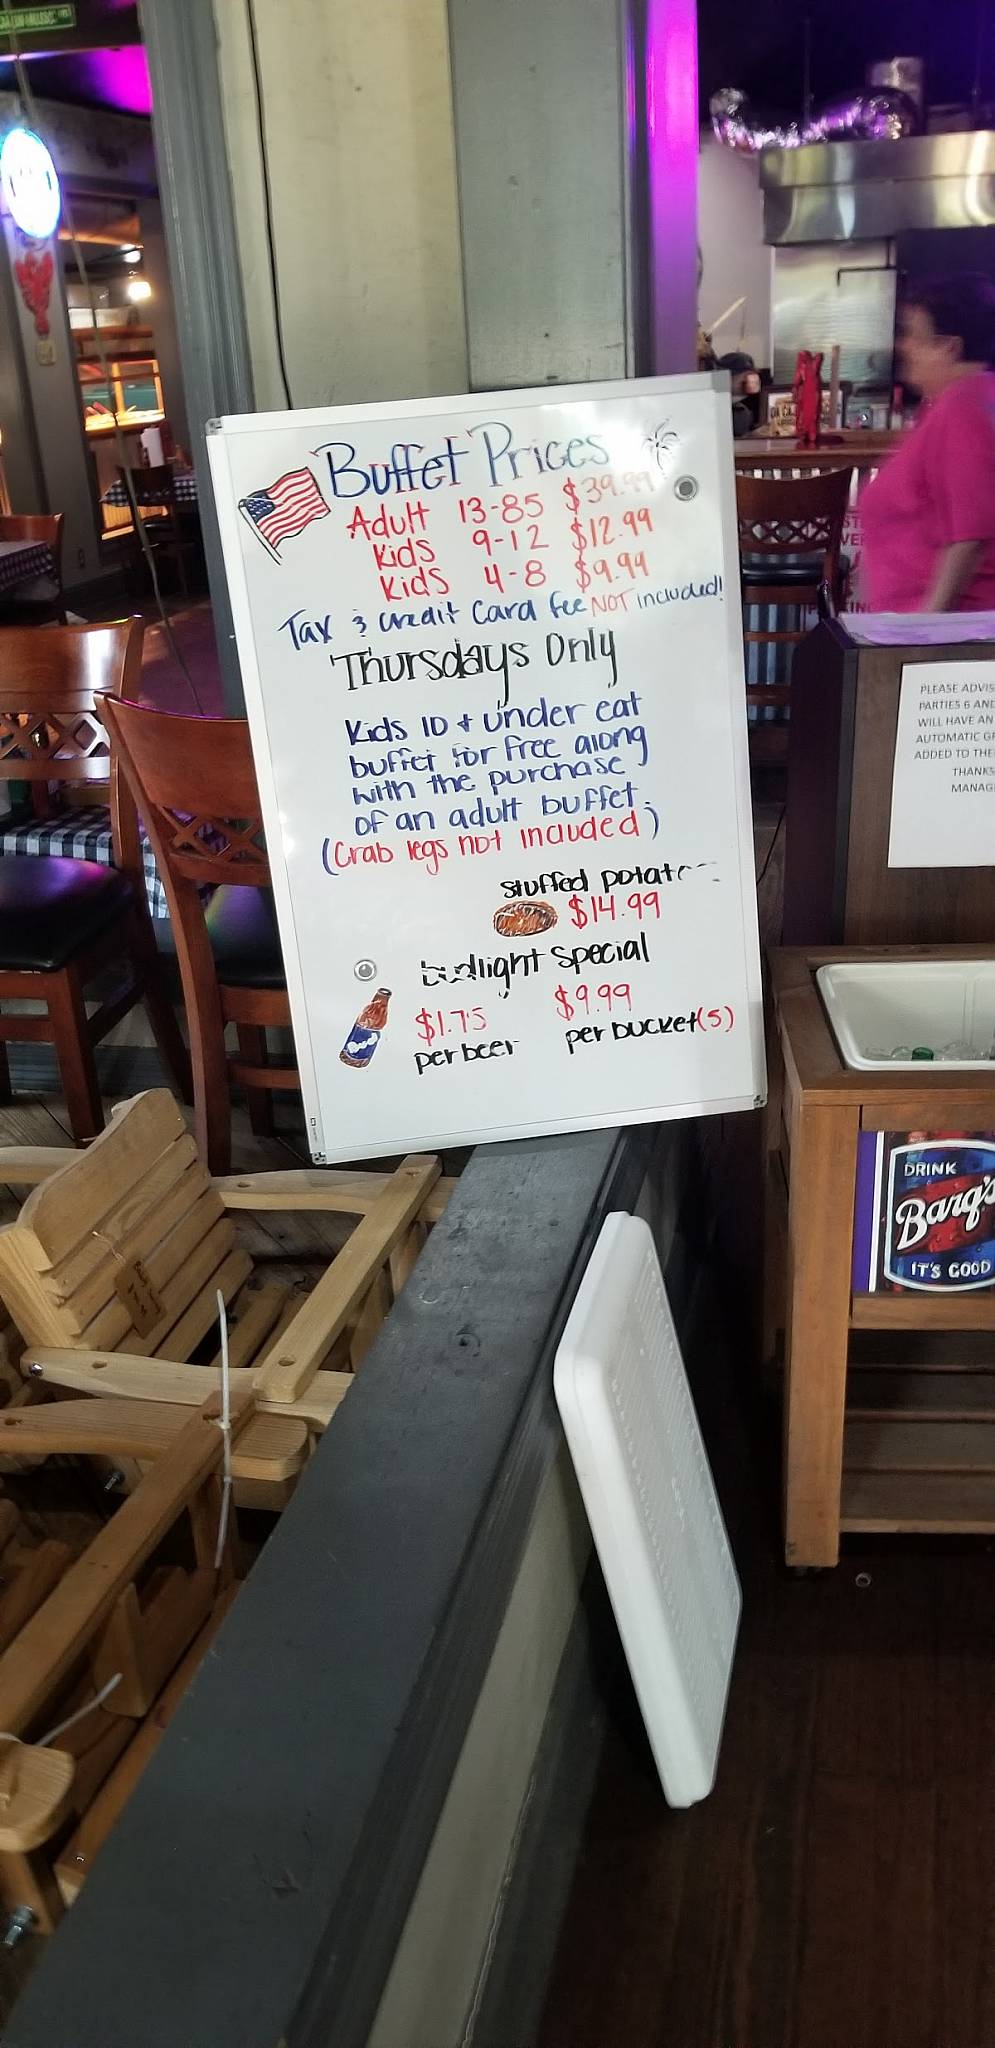 Buffet Prices
Adult 13-85 $39.99
Kids 9-12 $12.99
Kids 4-8 $9.99
Tax & credit Card fee NOT included!
Thursdays Only
Kids 10 & under eat
buffet for free along
with the purchase
of an adult buffet.
(Crab legs not included)
stuffed
$14.99
budlight special
$1.75 $9.99
per beer per bucket(5)
PLEASE ADVIS
PARTIES 6 AND
WILL HAVE AN
AUTOMATIC GR
ADDED TO THE
THANKS
MANAG
DRINK
Barq's
IT'S GOOD